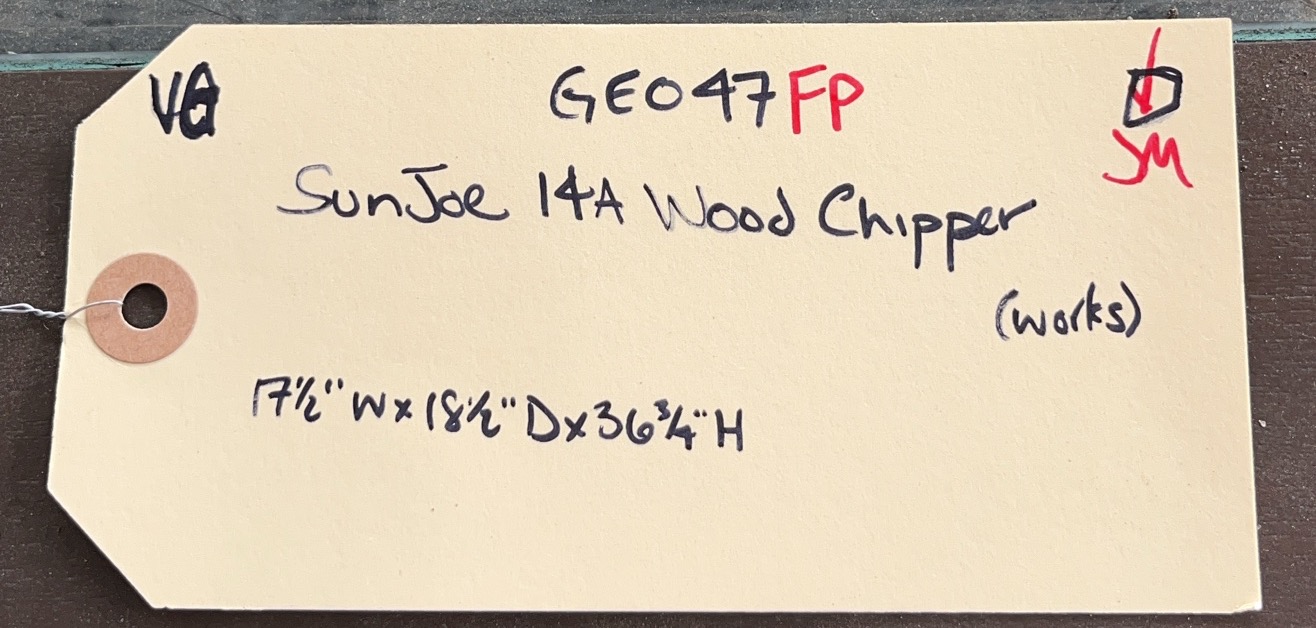 VG GEO47FP
JM
SunJoe 14A Wood Chipper
(works)
17½" W x 18½" D x 36¾" H